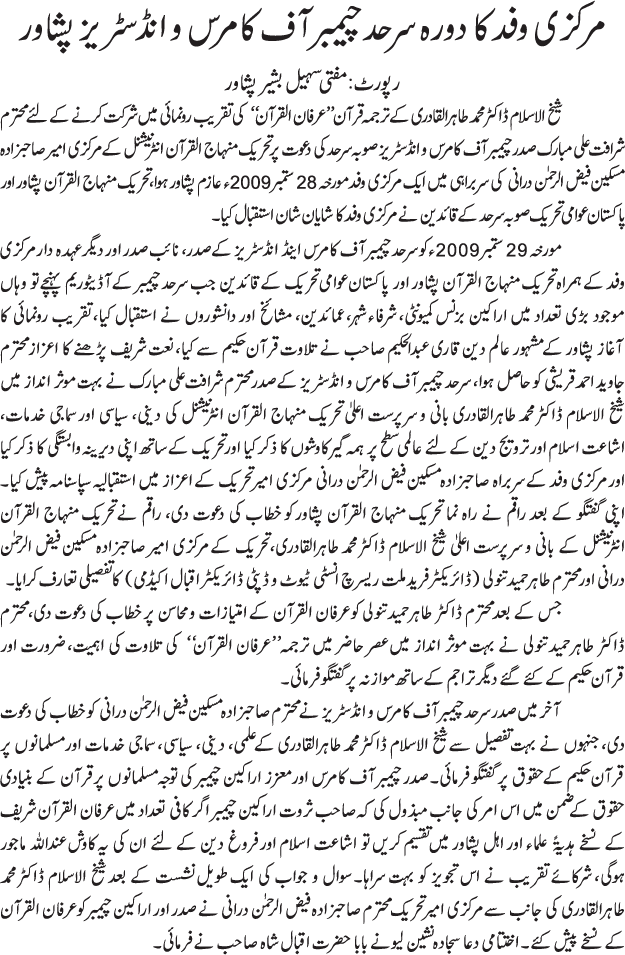 مرکزی وفد کا دورہ سرحد چیمبر آف کامرس و انڈسٹریز پشاور
رپورٹ: مفتی سہیل بشیر پشاور
شیخ الاسلام ڈاکٹر محمد طاہرالقادری کے ترجمہ قرآن ’’عرفان القرآن‘‘ کی تقریب رونمائی میں شرکت کرنے کے لئے محترم
شرافت علی مبارک صدر چیمبر آف کامرس و انڈسٹریز صوبہ سرحد کی دعوت پر تحریک منہاج القرآن انٹرنیشنل کے مرکزی امیر صاحبزادہ
مسکین فیض الرحمٰن درانی کی سربراہی میں ایک مرکزی وفد مورخہ 28 ستمبر 2009ء عازم پشاور ہوا، تحریک منہاج القرآن پشاور اور
پاکستان عوامی تحریک صوبہ سرحد کے قائدین نے مرکزی وفد کا شایان شان استقبال کیا۔
مورخہ 29 ستمبر 2009ء کو سرحد چیمبر آف کامرس اینڈ انڈسٹریز کے صدر، نائب صدر اور دیگر عہدہ دار مرکزی
وفد کے ہمراہ تحریک منہاج القرآن پشاور اور پاکستان عوامی تحریک کے قائدین جب سرحد چیمبر کے آڈیٹوریم پہنچے تو وہاں
موجود بڑی تعداد میں اراکین بزنس کمیونٹی، شرفاء شہر، عمائدین، مشائخ اور دانشوروں نے استقبال کیا، تقریب رونمائی کا
آغاز پشاور کے مشہور عالم دین قاری عبدالحکیم صاحب نے تلاوت قرآن حکیم سے کیا، نعت شریف پڑھنے کا اعزاز محترم
جاوید احمد قریشی کو حاصل ہوا، سرحد چیمبر آف کامرس و انڈسٹریز کے صدر محترم شرافت علی مبارک نے بہت موثر انداز میں
شیخ الاسلام ڈاکٹر محمد طاہرالقادری بانی و سرپرست اعلیٰ تحریک منہاج القرآن انٹرنیشنل کی دینی، سیاسی اور سماجی خدمات،
اشاعت اسلام اور ترویج دین کے لئے عالمی سطح پر ہمہ گیر کاوشوں کا ذکر کیا اور تحریک کے ساتھ اپنی دیرینہ وابستگی کا ذکر کیا
اور مرکزی وفد کے سربراہ صاحبزادہ مسکین فیض الرحمٰن درانی مرکزی امیر تحریک کے اعزاز میں استقبالیہ سپاسنامہ پیش کیا۔
اپنی گفتگو کے بعد راقم نے راہ نما تحریک منہاج القرآن پشاور کو خطاب کی دعوت دی، راقم نے تحریک منہاج القرآن
انٹرنیشنل کے بانی و سرپرست اعلیٰ شیخ الاسلام ڈاکٹر محمد طاہرالقادری، تحریک کے مرکزی امیر صاحبزادہ مسکین فیض الرحمٰن
درانی اور محترم طاہر حمید تنولی (ڈائریکٹر فرید ملت ریسرچ انسٹی ٹیوٹ و ڈپٹی ڈائریکٹر اقبال اکیڈمی) کا تفصیلی تعارف کرایا۔
جس کے بعد محترم ڈاکٹر طاہر حمید تنولی کو عرفان القرآن کے امتیازات و محاسن پر خطاب کی دعوت دی، محترم
ڈاکٹر طاہر حمید تنولی نے بہت موثر انداز میں عصر حاضر میں ترجمہ ’’عرفان القرآن‘‘ کی تلاوت کی اہمیت، ضرورت اور
قرآن حکیم کے کئے گئے دیگر تراجم کے ساتھ موازنہ پر گفتگو فرمائی۔
آخر میں صدر سرحد چیمبر آف کامرس و انڈسٹریز نے محترم صاحبزادہ مسکین فیض الرحمٰن درانی کو خطاب کی دعوت
دی، جنہوں نے بہت تفصیل سے شیخ الاسلام ڈاکٹر محمد طاہرالقادری کے علمی، دینی، سیاسی، سماجی خدمات اور مسلمانوں پر
قرآن حکیم کے حقوق پر گفتگو فرمائی۔ صدر چیمبر آف کامرس اور معزز اراکین چیمبر کی توجہ مسلمانوں پر قرآن کے بنیادی
حقوق کے ضمن میں اس امر کی جانب مبذول کی کہ صاحب ثروت اراکین چیمبر اگر کافی تعداد میں عرفان القرآن شریف
کے نسخے ہدیۃً علماء اور اہل پشاور میں تقسیم کریں تو اشاعت اسلام اور فروغ دین کے لئے ان کی یہ کاوش عنداللہ ماجور
ہوگی، شرکائے تقریب نے اس تجویز کو بہت سراہا۔ سوال و جواب کی ایک طویل نشست کے بعد شیخ الاسلام ڈاکٹر محمد
طاہرالقادری کی جانب سے مرکزی امیر تحریک محترم صاحبزادہ فیض الرحمٰن درانی نے صدر اور اراکین چیمبر کو عرفان القرآن
کے نسخے پیش کئے۔ اختتامی دعا سجادہ نشین لیونے بابا حضرت اقبال شاہ صاحب نے فرمائی۔